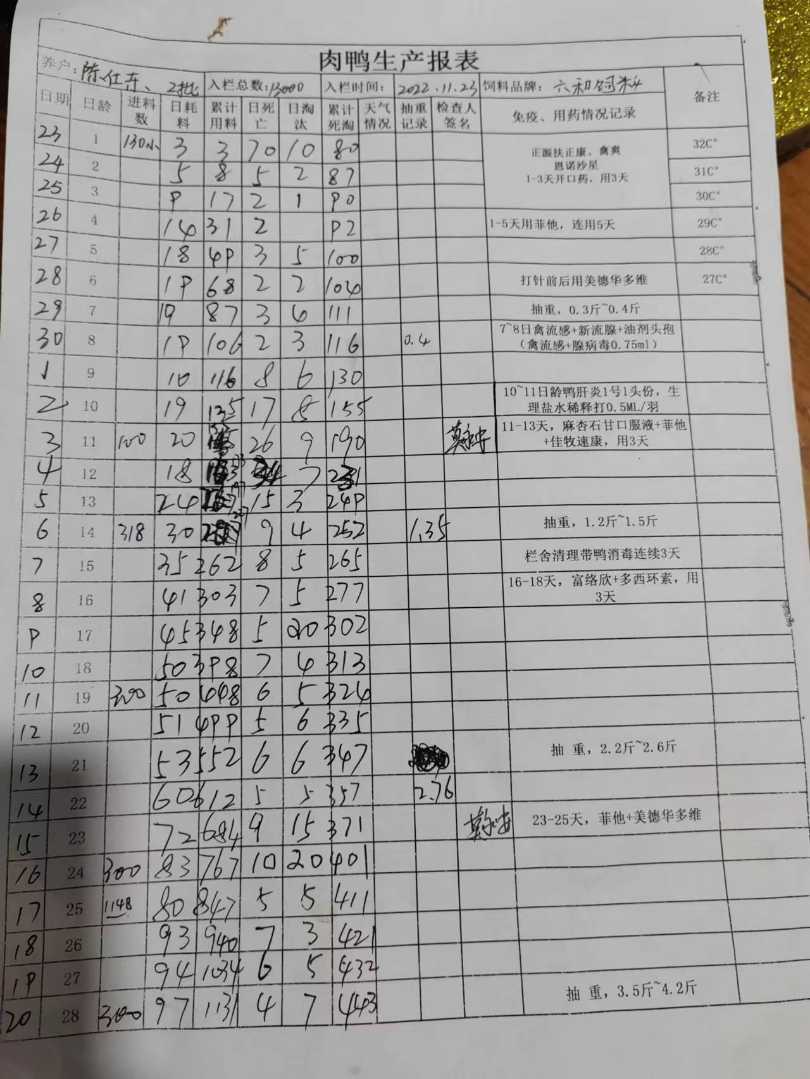 肉鸭生产报表
养户: 陈仕东、2批 入栏总数: 13000 入栏时间: 2022.11.23 饲料品牌: 六和饲料 备注
日期 日龄 进料数 日耗料 累计用料 日死亡 日淘汰 累计死淘 天气情况 抽重记录 检查人签名 免疫、用药情况记录
23 1 130小 3 3 70 10 80 正源扶正康、禽爽 32C°
恩诺沙星
1-3天开口药，用3天
24 2 5 8 5 2 87 31C°
25 3 9 17 2 1 90 30C°
26 4 14 31 2 92 1-5天用菲他，连用5天 29C°
27 5 18 49 3 5 100 28C°
28 6 19 68 2 2 104 打针前后用美德华多维 27C°
29 7 19 87 3 4 111 抽重，0.3斤~0.4斤
30 8 19 106 2 3 116 0.4 7~8日禽流感+新流腺+油剂头孢
（禽流感+腺病毒0.75ml）
1 9 10 116 8 6 130
2 10 19 135 17 8 155 10~11日龄鸭肝炎1号1头份，生
理盐水稀释打0.5ML/羽
3 11 100 20 26 9 190 11-13天，麻杏石甘口服液+菲他
+佳牧速康，用3天
4 12 18 7 231
5 13 24 15 3 249
6 14 318 30 9 4 252 1.35 抽重，1.2斤~1.5斤
7 15 35 262 8 5 265 栏舍清理带鸭消毒连续3天
8 16 41 303 7 5 277 16-18天，富络欣+多西环素，用
3天
9 17 45 348 5 20 302
10 18 50 398 7 4 313
11 19 300 50 448 6 5 324
12 20 51 499 5 6 335
13 21 53 552 6 6 347 抽 重，2.2斤~2.6斤
14 22 60 612 5 5 357 2.76
15 23 72 684 9 15 371 23-25天，菲他+美德华多维
16 24 300 83 767 10 20 401
17 25 1148 80 847 5 5 411
18 26 93 940 7 3 421
19 27 94 1034 6 5 432
20 28 300 97 1131 4 7 443 抽 重，3.5斤~4.2斤